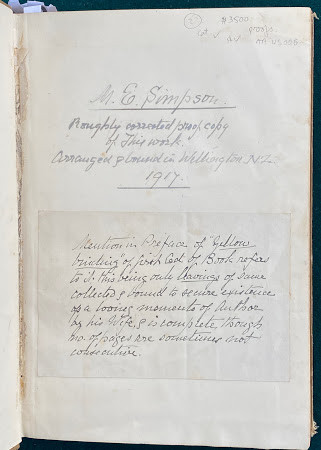 $3500
proofs
M. E. Simpson.
Roughly corrected proof copy
of This work.
Arranged & bound in Wellington N.Z.
1917.
Mention in Preface of "Yellow
binding" of first Ed. of Book refers
to this being only of same
collected & bound to secure existence
of a loving of Author
by his Wife, & is complete though
no. of pages are sometimes not
consecutive.